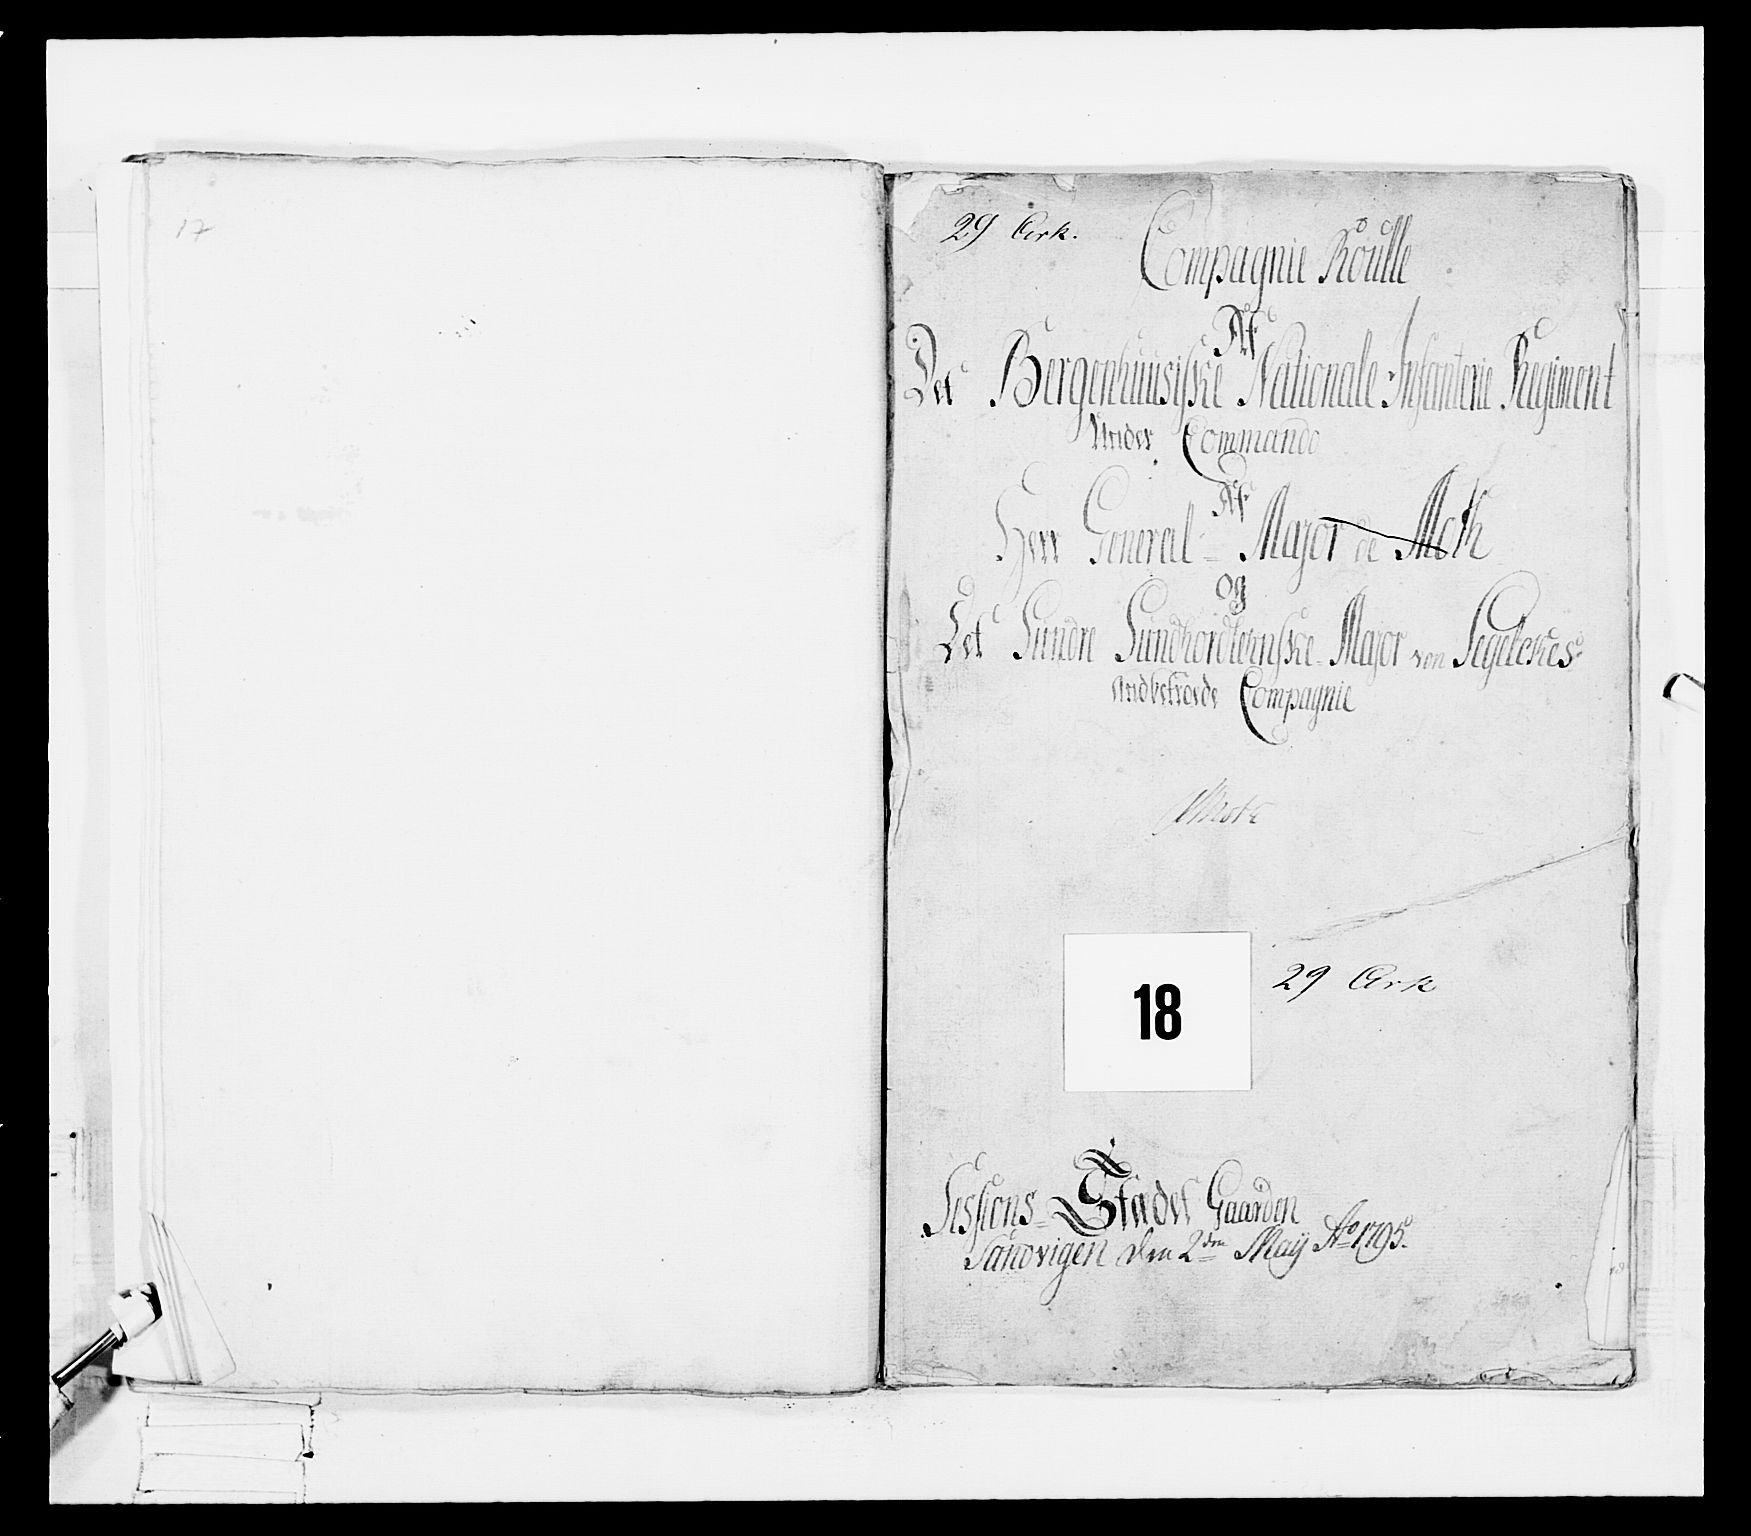 17
29 Ark.
Compagnie Roulle
Af
Det Bergenhuusiske Nationale Infanterie Regiment
Under Commando
Af
Herr General-Major de Moth
og
Det Sundre Sundhordlehnske Major von Segelckes
andbetroede Compagnie
29 Ark
18
Sessions-Stædet Gaarden
Sandvigen den 2den Maÿ Ao 1795.